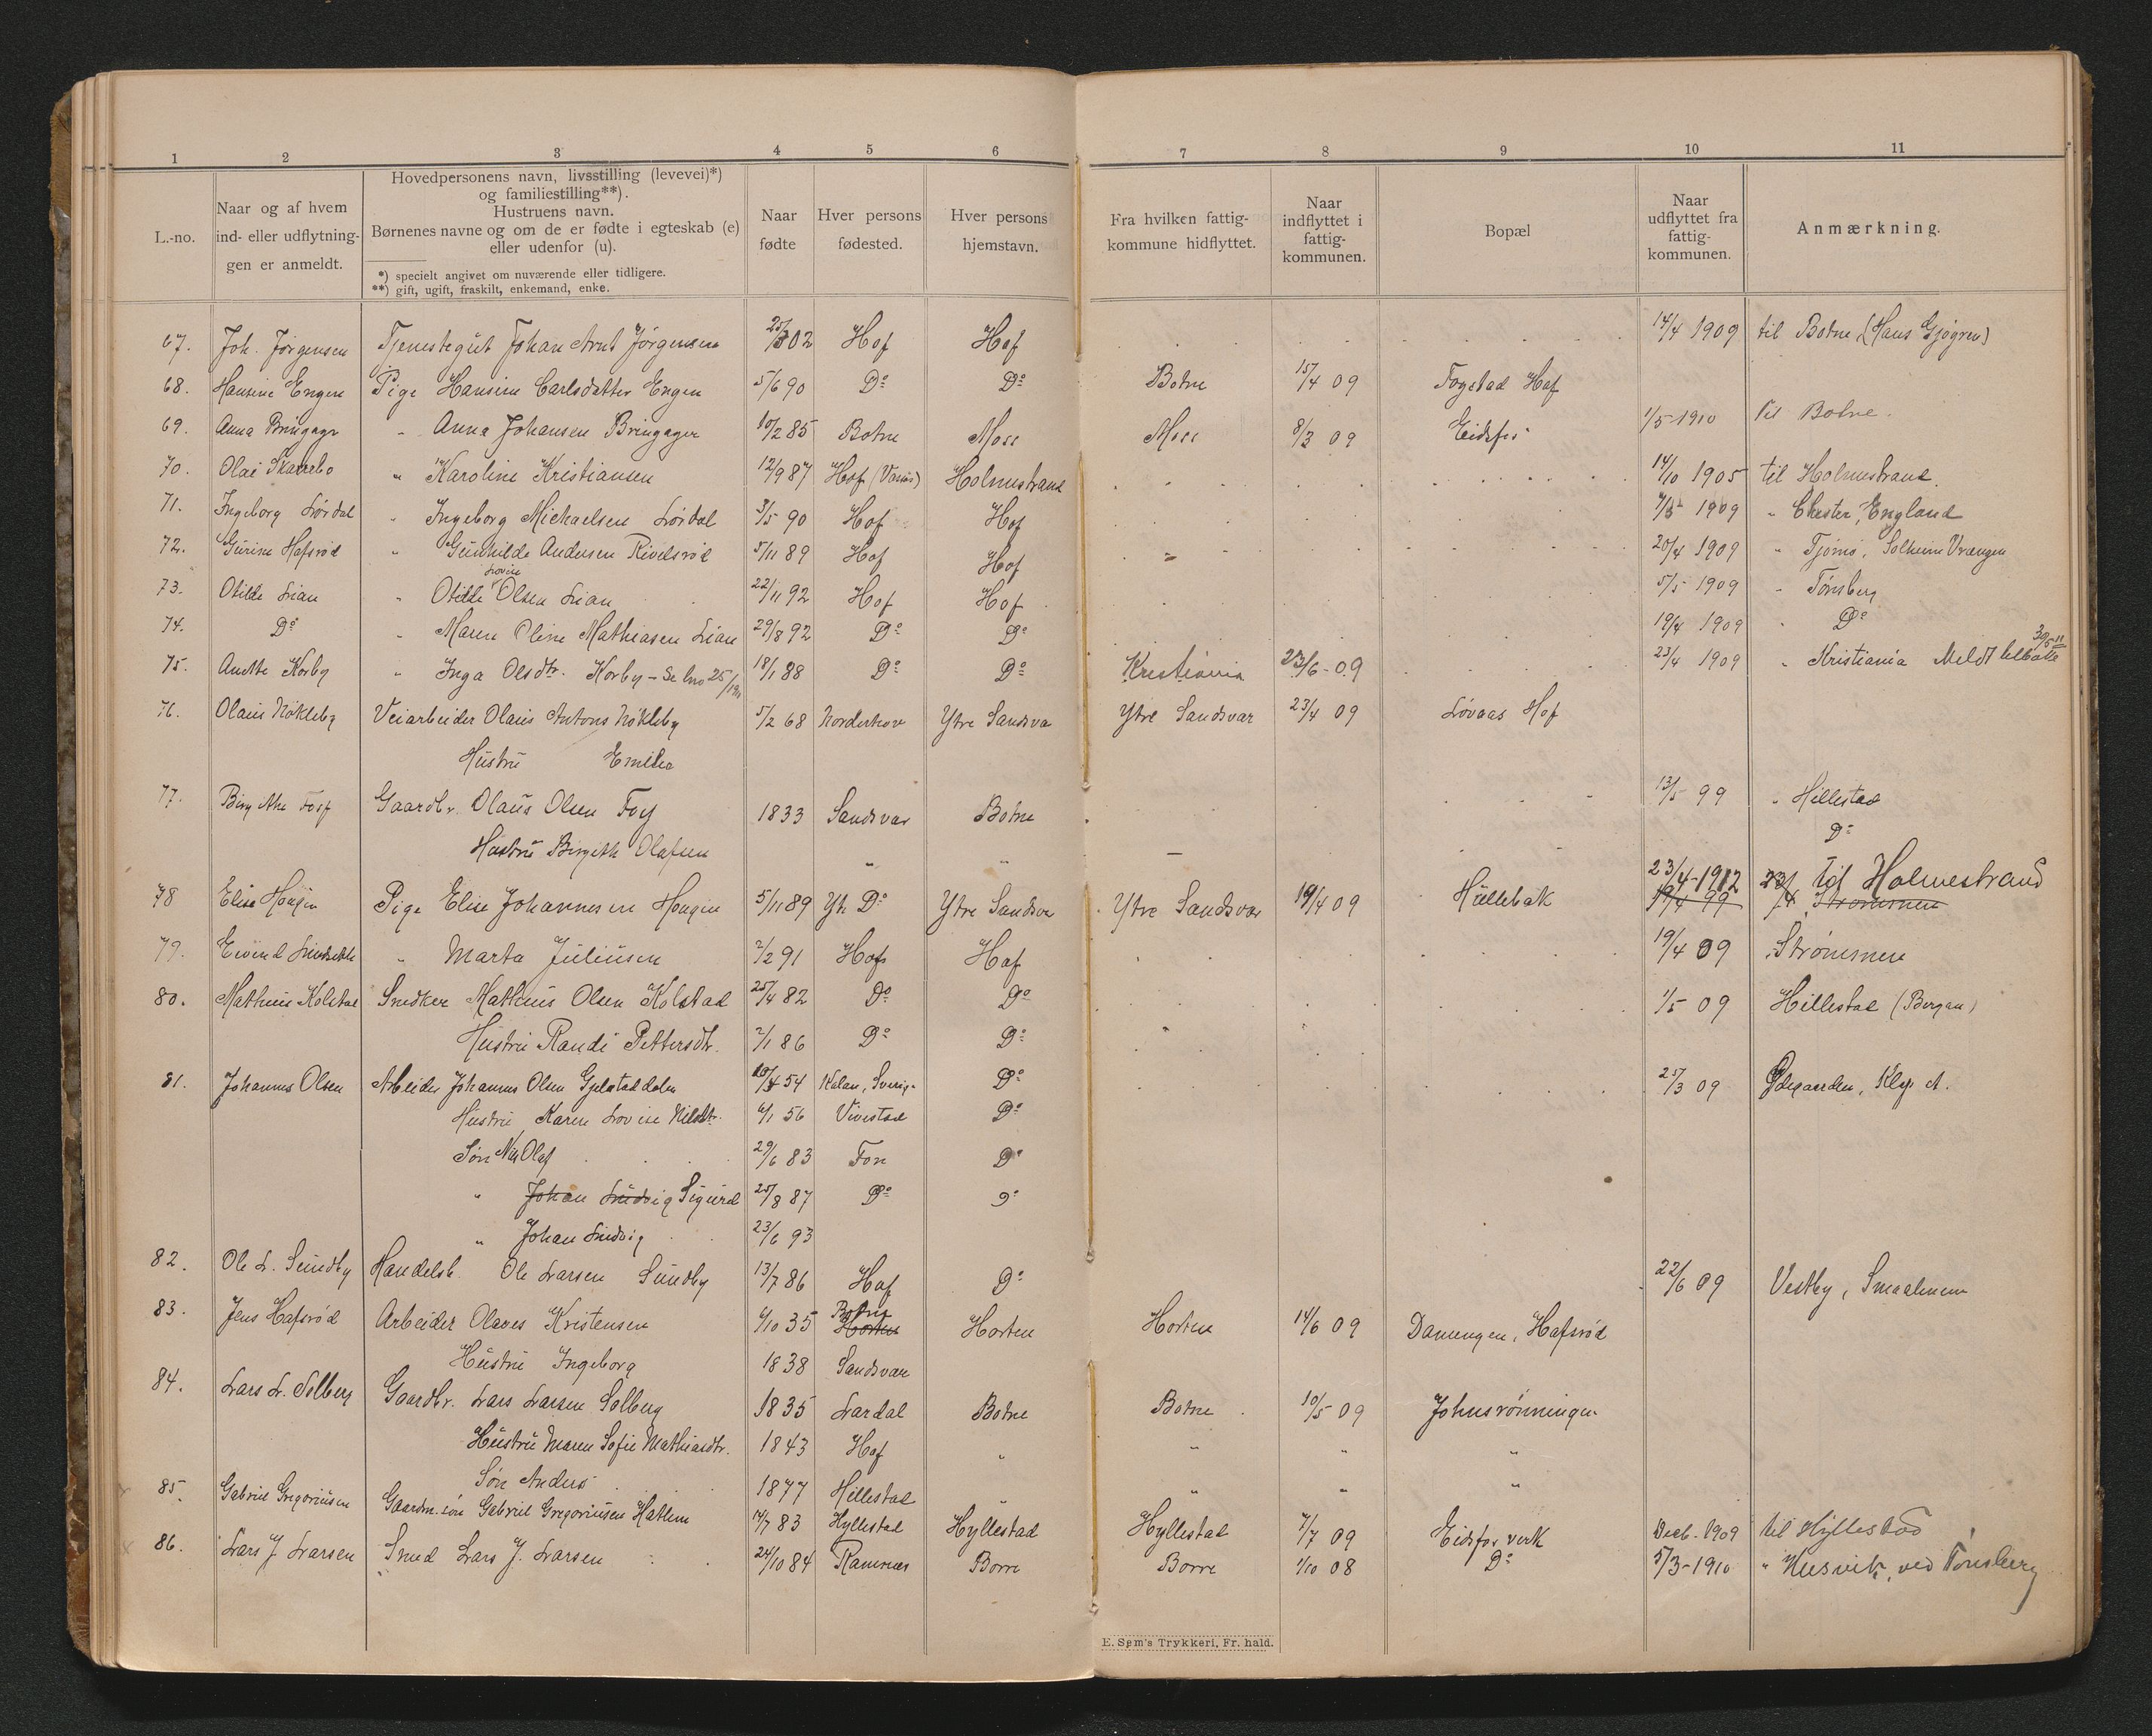 1 2 3 4 5 6 7 8 9 10 11
L.-no.
Naar og af hvem ind- eller udflytning-gen er anmeldt.
Hovedpersonens navn, livsstilling (levevei)*)
og familiestilling**).
Hustruens navn.
Børnenes navne og om de er fødte i egteskab (e)
eller udenfor (u).
*) specielt angivet om nuværende eller tidligere.
**) gift, ugift, fraskilt, enkemand, enke.
Naar fødte
Hver persons fødested.
Hver persons hjemstavn.
Fra hvilken fattig-kommune hidflyttet.
Naar indflyttet i fattig-kommunen.
Bopæl
Naar udflyttet fra fattig-kommunen.
Anmærkning.
67. Joh. Jørgensen Tjenestegut Johan Arnt Jørgensen 02 Hof Hof 14/4 1909 til Botne (Hans Gjøgren)
68. Hansine Engen Pige Hansine Carlsdatter Engen 5/6 90 Do Do Botne 15/4 09 Hof
69. Anna Bringager " Anna Johansen Bringager 10/2 85 Botne Moss Moss 8/3 09 Eidsfos 1/5-1910 til Botne.
70. Olai " Karoline Kristiansen 12/9 87 Hof Holmestrand 14/10 1905 til Holmestrand.
71. Ingeborg Lørdal " Ingeborg Michaelsen Lørdal 3/5 90 Hof Hof 1909 " Chester, England
72. Gurine Hafsrød " Gunhilde Andersen Rivelsrød 5/11 89 Hof Hof 20/4 1909 " Tjømø, Solheim Vrængen
73. Otilde Lian " Otilde Lovise Olsen Lian 22/11 92 Hof Hof 5/5 1909 " Tønsberg
74. Do " Maren Oline Mathiasen Lian 29/8 92 Do Do 19/4 1909 " Do
75. Anette Korby " Inga Olsdtr. Korby - Se lno 25/1911 18/1 88 Do Do Kristiania 23/6-09 23/4 1909 " Kristiania Meldt tilbake 30/5 11
76. Olaus Nøkleby Veiarbeider Olaus Antons Nøkleby 5/2 68 Norderhov Ytre Sandsvær Ytre Sandsvar 23/4 09 Løvaas Hof
Hustru Emilie
77. Birgithe Gaardbr. Olaus Olsen 1833 Sandsvar Botne 13/5 99 " Hillestad
Hustru Birgith Olafsen " " Do
78 Elise Hougen Pige Elise Johannesen Hougen 5/11 89 Yt. Do Ytre Sandsvær Ytre Sandsvar 19/4 09 Hullebak 23/4-1912 23/4 til Holmestrand
19/4 99 Strømmen
79. Eivind " Marta Juliusen 2/2 91 Hof Hof 19/4 09 " Strømmen
80. Mathius Kolstad Snedker Mathius Olsen Kolstad 25/4 82 Do Do 1/5 09 Hillestad (Bergan)
Hustru Randi Pettersdtr. 2/1 86 Do Do
81. Johannes Olsen Arbeider Johannes Olsen Gjelstaddalen 54 Sverig. Do 25/3 09 Ødegaarden,
Hustru Karen Lovise Nilsdtr. 6/1 56 Vivestad Do
Søn Nils Olaf 29/6 83 Fon Do
" Johan Ludvig Sigurd 25/8 87 Do Do
" Johan Ludvig 23/6 93
82. Ole L. Sundby Handelsb. Ole Larsen Sundby 13/7 86 Hof Do 22/6 09 Vestby, Smaalenene
83. Jens Hafsrød Arbeider Olaves Kristensen 6/10 35 Botne Horten Horten Horten 14/6 09 Damengen, Hafsrød
Hustru Ingeborg 1838 Sandsvær
84. Lars L. Solberg Gaardbr. Lars Larsen Solberg 1835 Lardal Botne Botne 10/5 09 Johnsrønningen
Hustru Maren Sofie Mathiasdtr. 1843 Hof " " " "
Søn Anders 1877 Hillestad " " " "
85. Gabriel Gregoriusen Gaardm. søn Gabriel Gregoriusen Hatlem 83 Hyllestad Hyllestad Hyllestad 7/7 09 Eidsfos verk Decb. 1909 til Hyllestad
86. Lars J. Larsen Smed Lars J. Larsen 24/10 84 Ramnæs Borre Borre 1/10 08 Do 5/3-1910 " Husvik, ved Tønsberg
E. Sem's Trykkeri, Fr. hald.